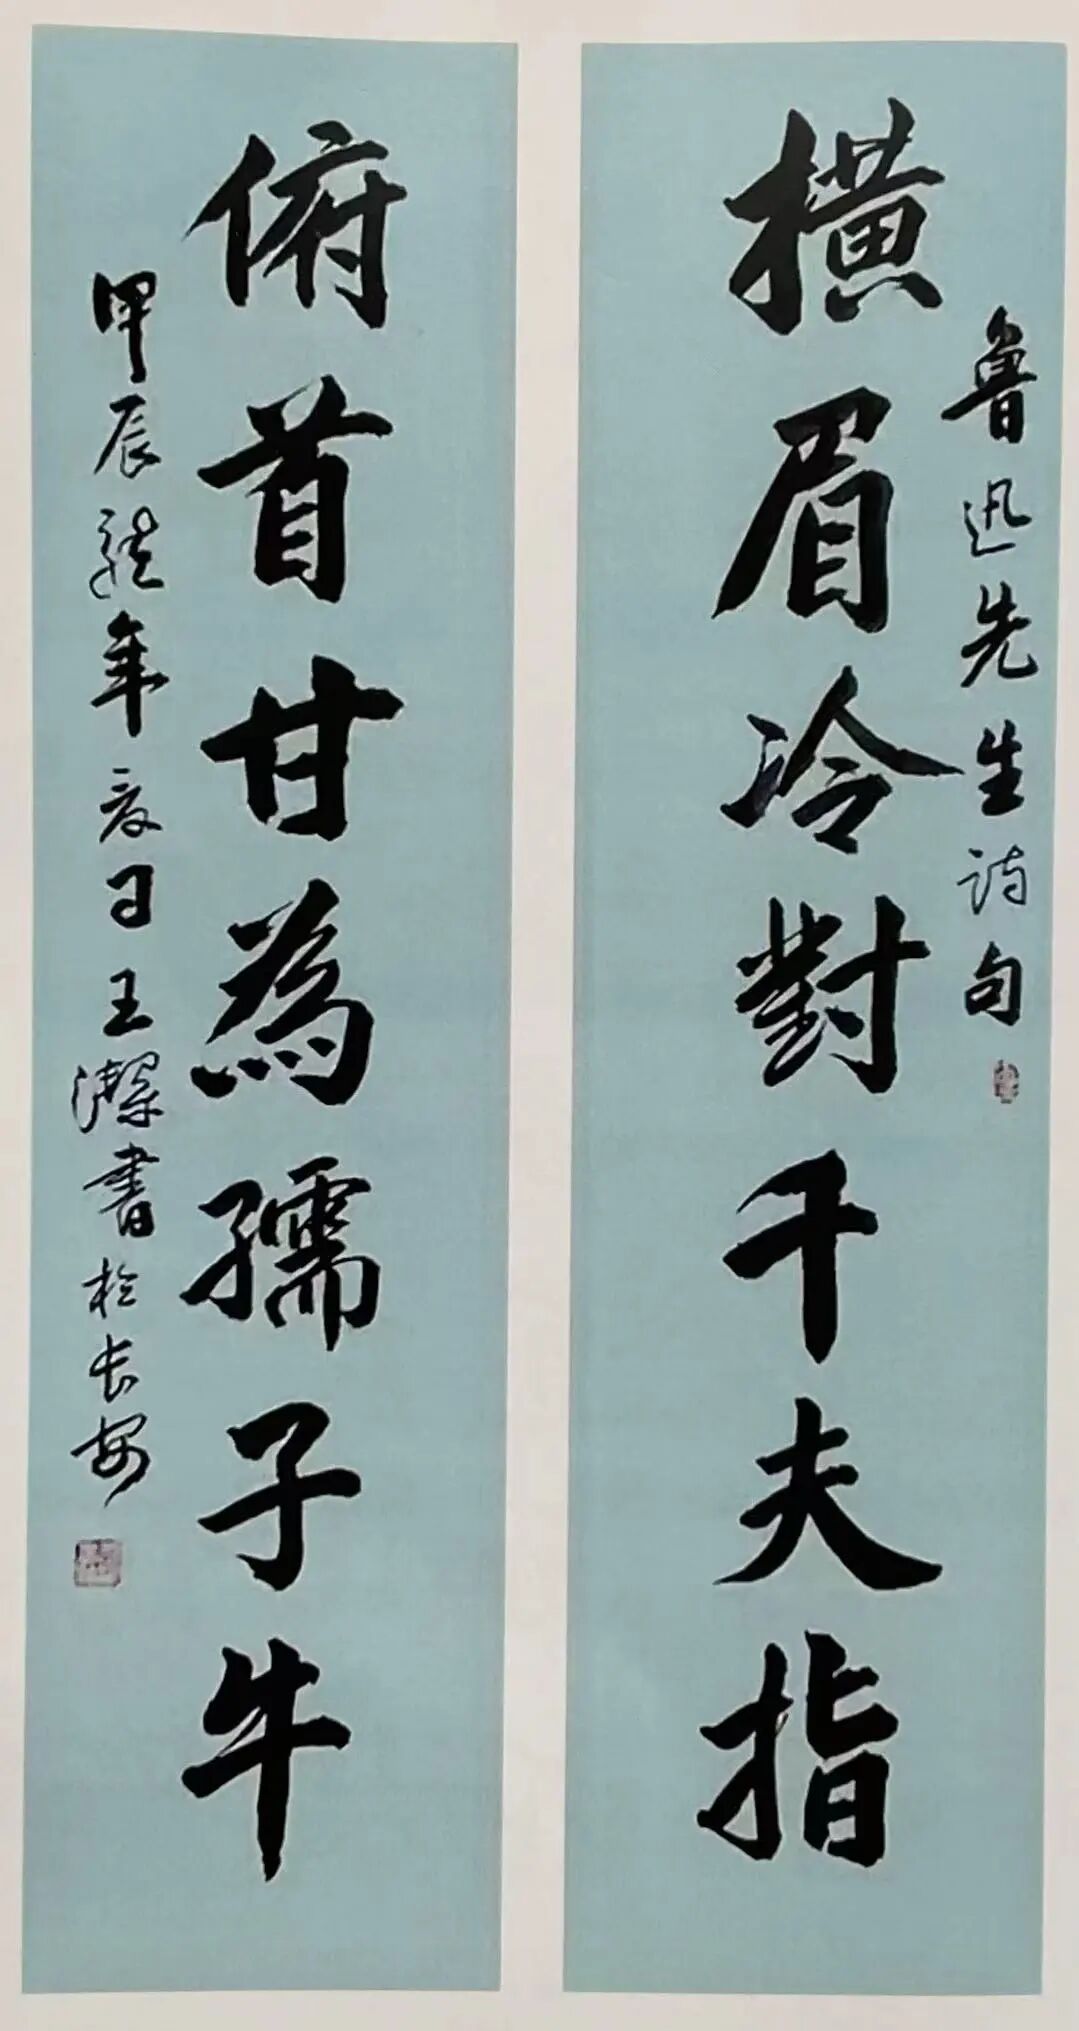 橫眉冷對千夫指
魯迅先生詩句
俯首甘為孺子牛
甲辰龍年夏日王潔書於長安